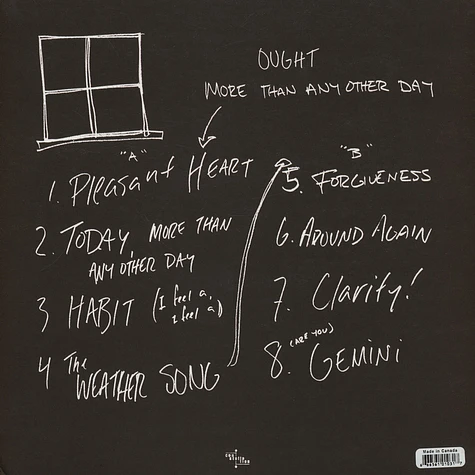 OUGHT
MORE THAN ANY OTHER DAY
"A"
1. Pleasant HEART
2. TODAY, MORE THAN
ANY OTHER DAY
3 HABIT (I feel a,
I feel a)
4 The
WEATHER SONG
"B"
5. FORGIVENESS
6. AROUND AGAIN
7. Clarity!
(ARE YOU)
8. GEMINI
Made in Canada